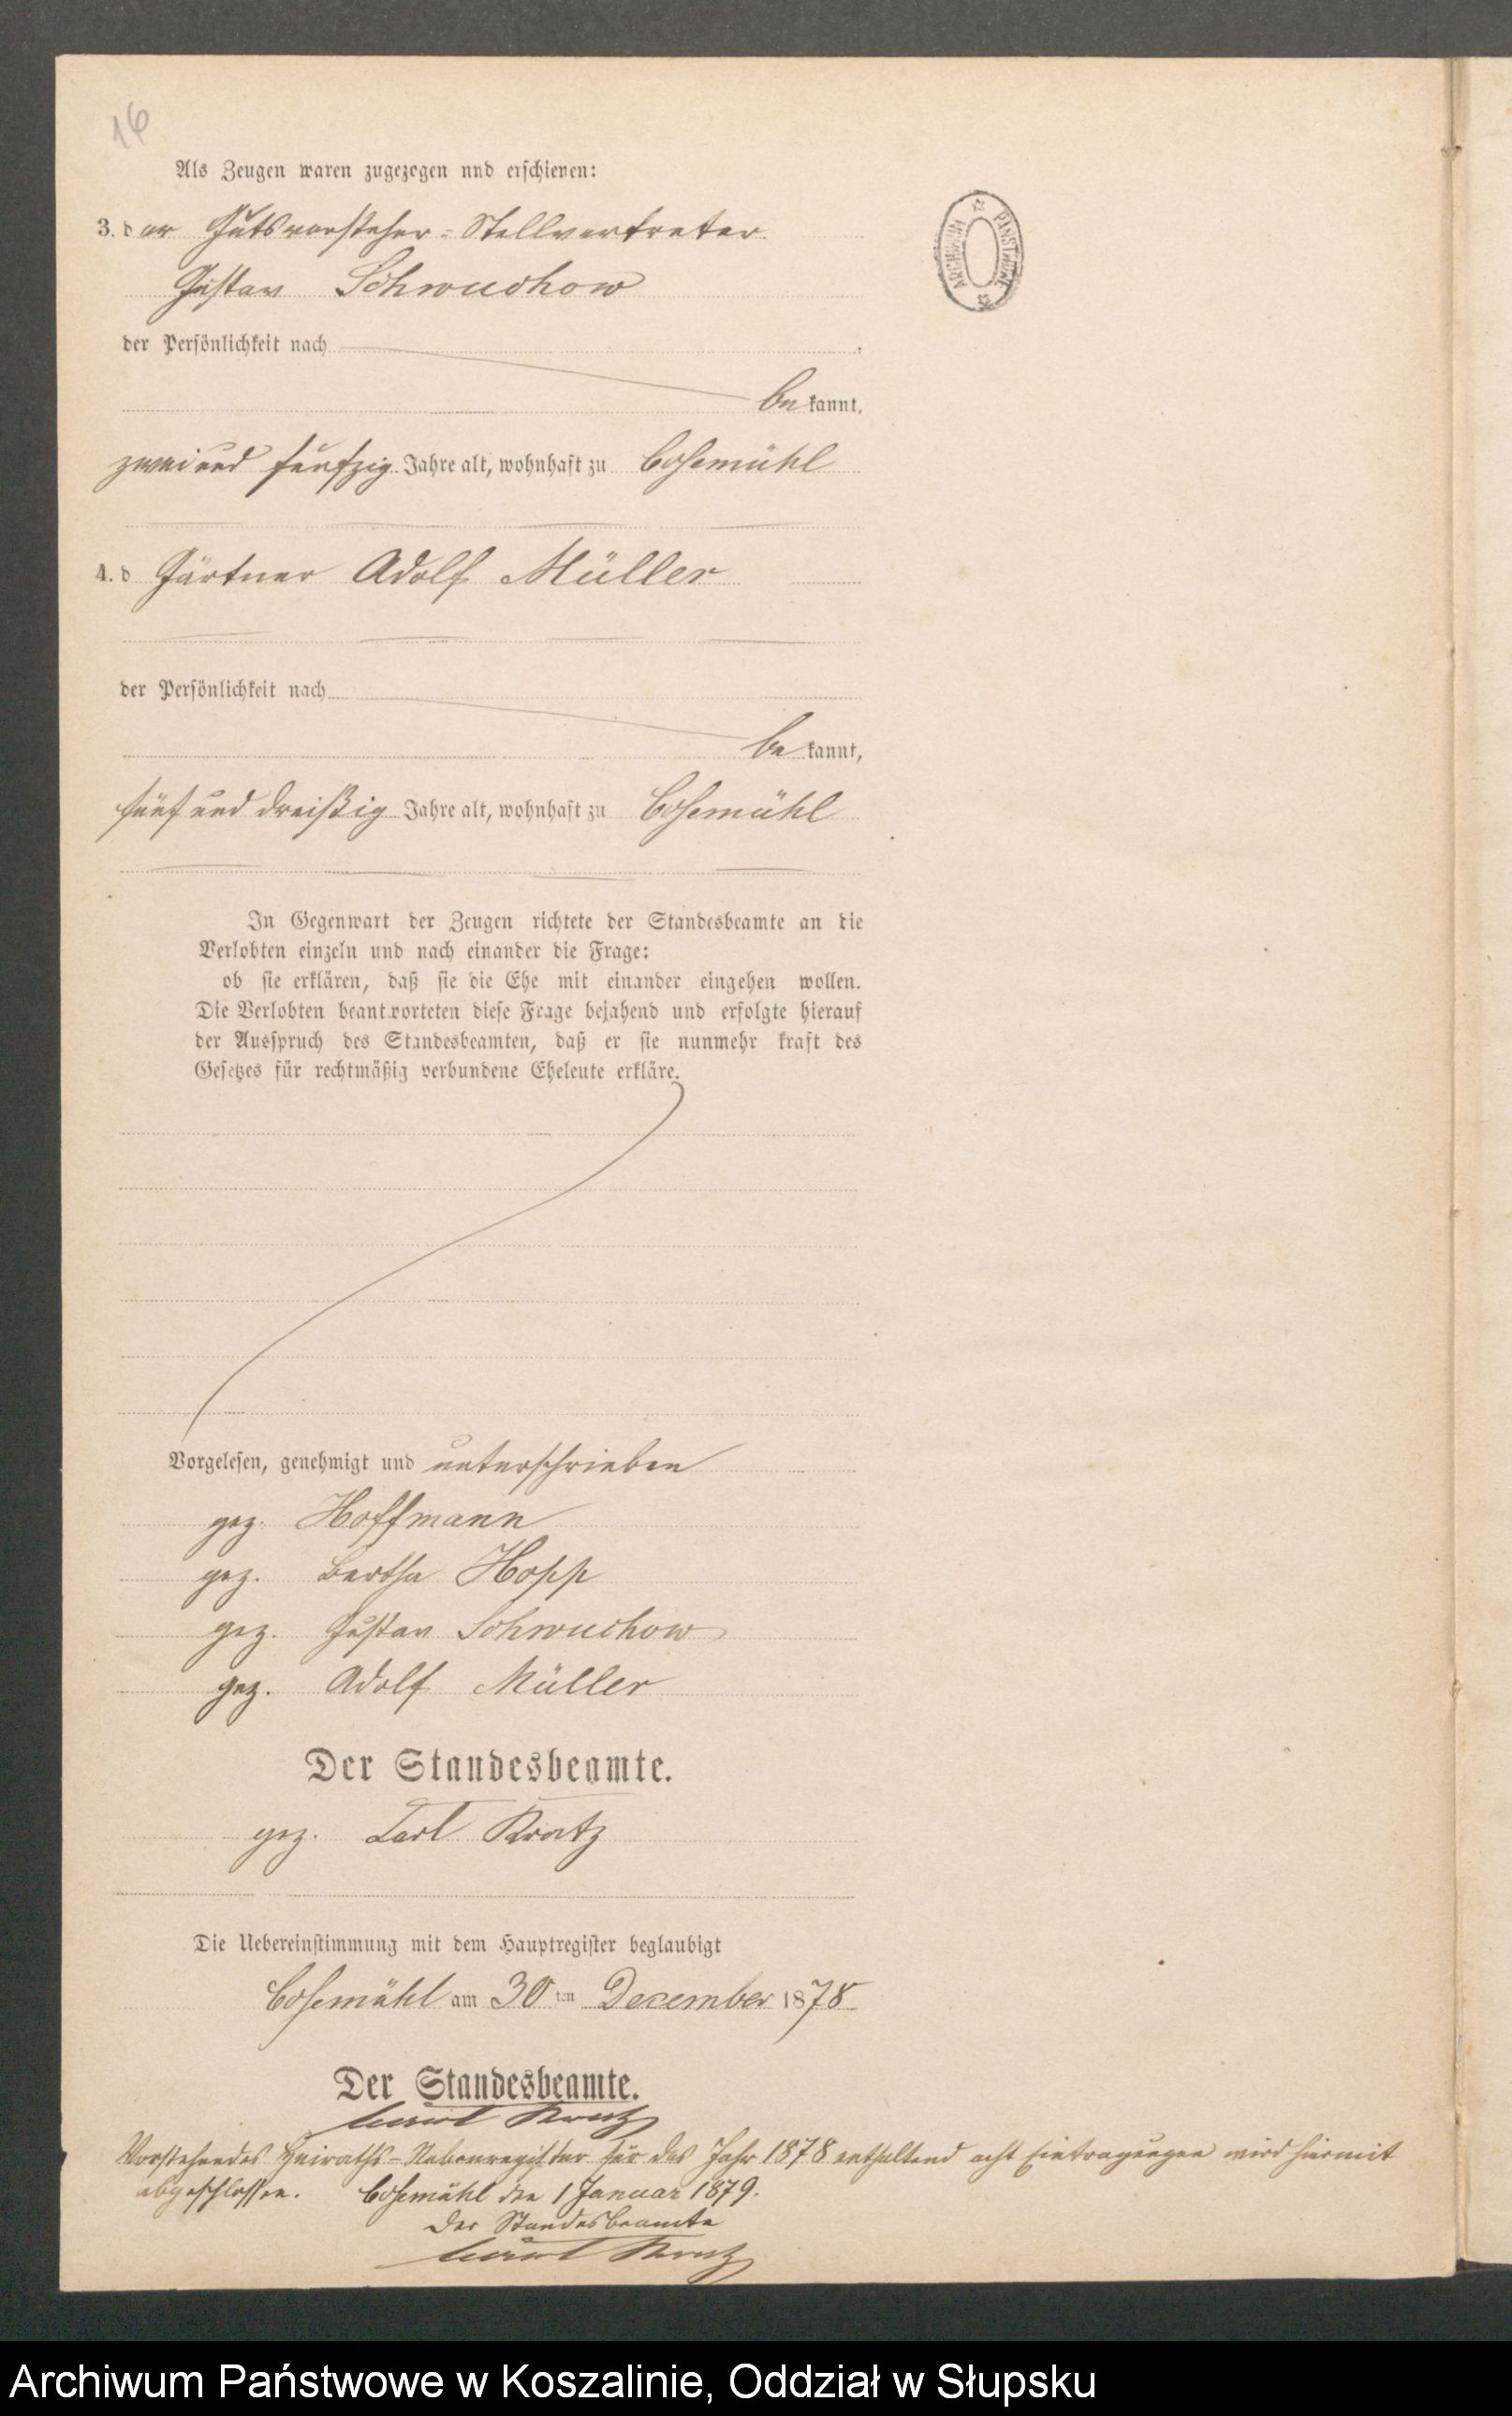 16
Als Zeugen waren zugezogen und erschienen:
3. der Gutsvorsteher-Stellvertreter
Gustav Schwuchow
der Persönlichkeit nach
bekannt,
zweiund fünfzig Jahre alt, wohnhaft zu Cosemühl
4. d Gärtner Adolf Müller
der Persönlichkeit nach
bekannt,
fünf und dreißig Jahre alt, wohnhaft zu Cosemühl
In Gegenwart der Zeugen richtete der Standesbeamte an die
Verlobten einzeln und nach einander die Frage:
ob sie erklären, daß sie die Ehe mit einander eingehen wollen.
Die Verlobten beantworteten diese Frage bejahend und erfolgte hierauf
der Ausspruch des Standesbeamten, daß er sie nunmehr kraft des
Gesetzes für rechtmäßig verbundene Eheleute erkläre.
Vorgelesen, genehmigt und unterschrieben
gez. Hoffmann
gez. Bertha Hopp
gez. Gustav Schwuchow
gez. Adolf Müller
Der Standesbeamte.
gez. Carl Kratz
Die Uebereinstimmung mit dem Hauptregister beglaubigt
Cosemühl am 30ten December 1878
Der Standesbeamte.
Carl Kratz
Vorstehendes Heiraths-Nebenregister für das Jahr 1878 enthaltend acht Eintragungen wird hiermit
abgeschlossen. Cosemühl den 1 Januar 1879.
Der Standesbeamte
Carl Kratz
ARCHIWUM PAŃSTWOWE
Archiwum Państwowe w Koszalinie, Oddział w Słupsku